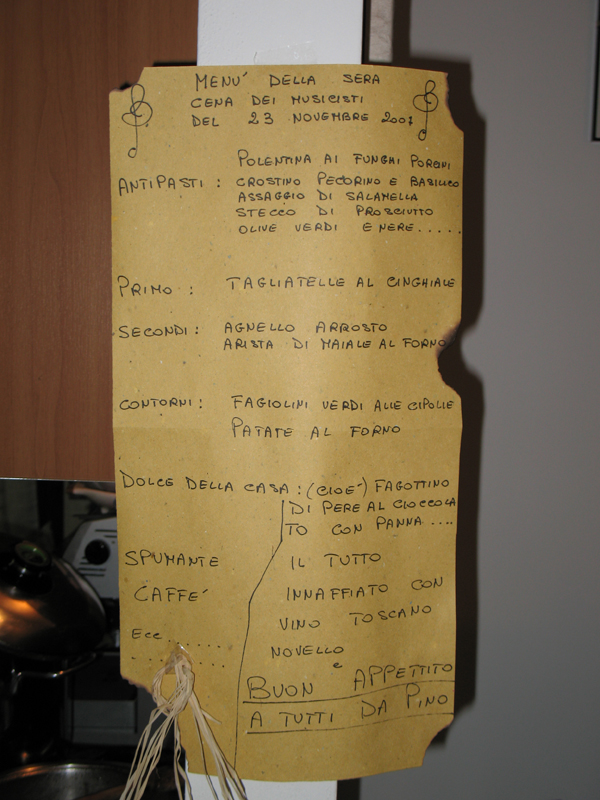 MENU' DELLA SERA
CENA DEI MUSICISTI
DEL 23 NOVEMBRE 2007
POLENTINA AI FUNGHI PORCINI
ANTIPASTI : CROSTINO PECORINO E BASILICO
ASSAGGIO DI SALAMELLA
STECCO DI PROSCIUTTO
OLIVE VERDI E NERE.....
PRIMO : TAGLIATELLE AL CINGHIALE
SECONDI : AGNELLO ARROSTO
ARISTA DI MAIALE AL FORNO
CONTORNI : FAGIOLINI VERDI ALLE CIPOLLE
PATATE AL FORNO
DOLCE DELLA CASA : (CIOE') FAGOTTINO
DI PERE AL CIOCCOLA
TO CON PANNA ....
SPUMANTE
CAFFE'
Ecc.......
..........
IL TUTTO
INNAFFIATO CON
VINO TOSCANO
NOVELLO
e
BUON APPETTITO
A TUTTI DA PINO